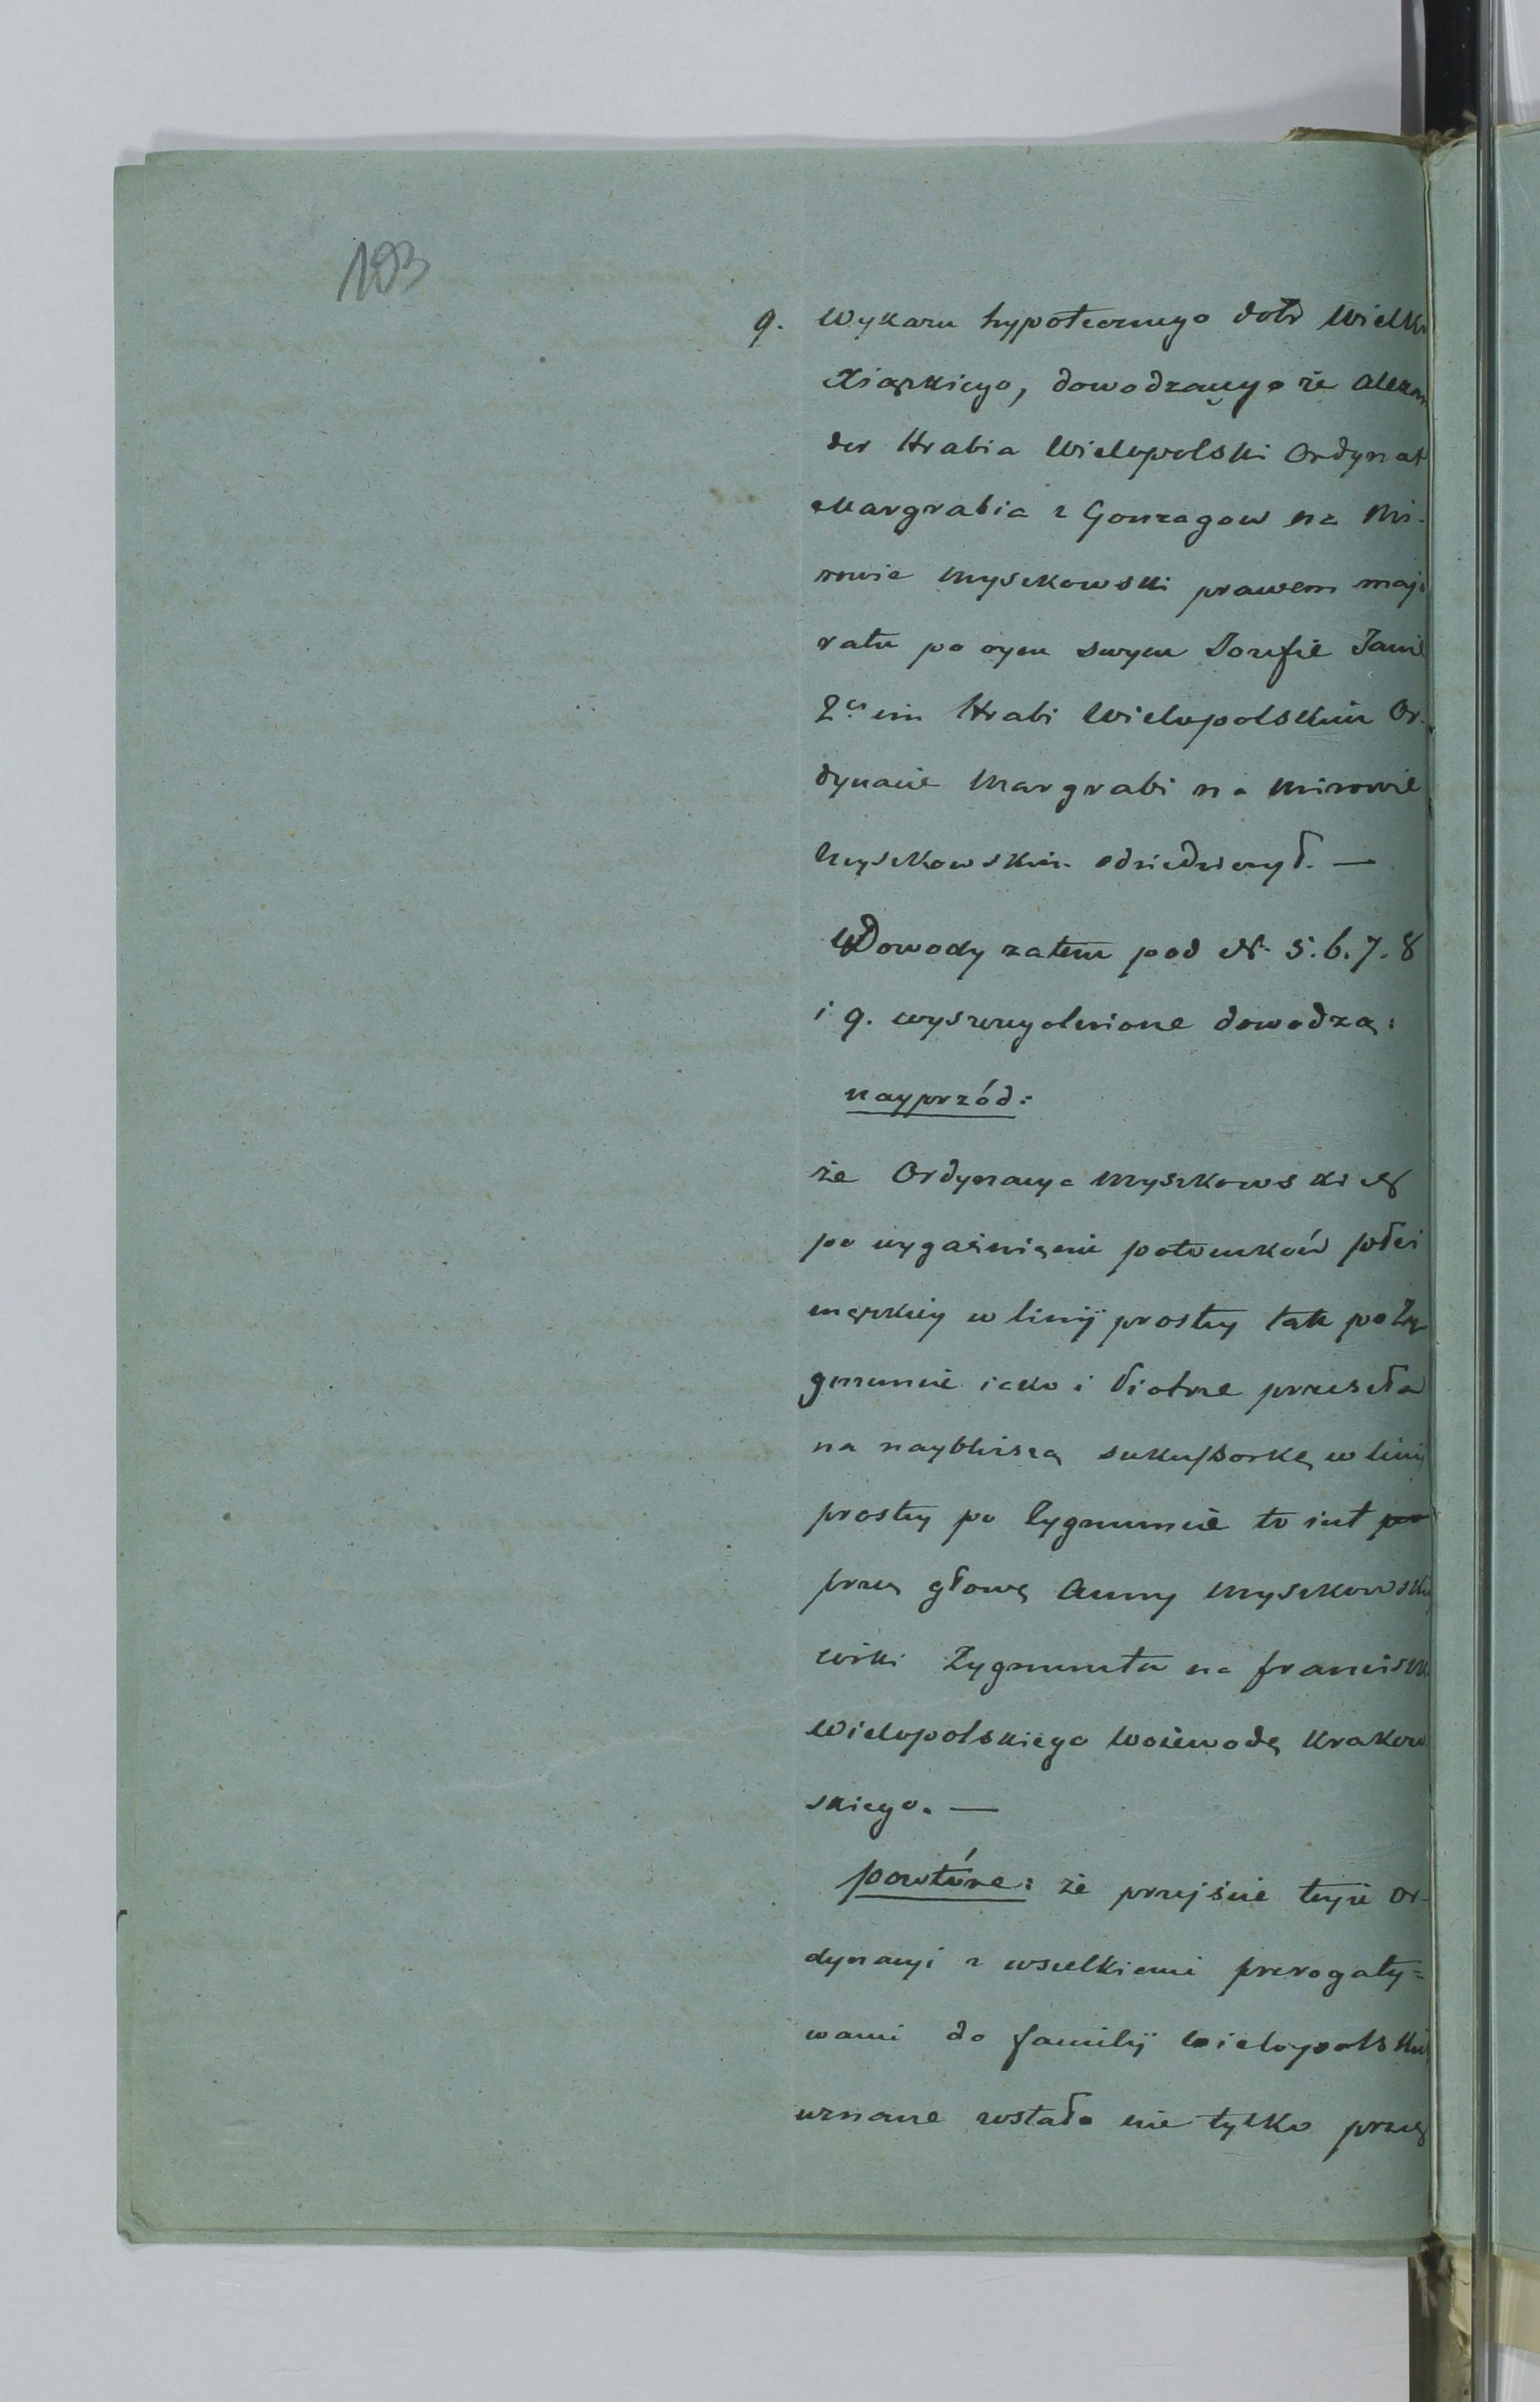 193
9. Wykazu hypotecznego dobr Wielki
Xiązkiego, dowodzącego że Alexan
der Hrabia Wielopolski Ordynat
Margrabia z Gonzagow na Mi-
rowie Myszkowski prawem majo
ratu po oycu swym Jozefie Janie
2ch im Hrabi Wielopolskim Or-
dynacie Margrabi na Mirowie
Myszkowskim odziedziczył. —
Dowody zatem pod N. 5. 6. 7. 8
i 9. wyszczegolnione dowodzą:
nayprzód:
że Ordynacya Myszkowskich
po wygaśnięciu potomków płci
męzkiey w linij prostey tak po Zy
gmuncie iako i Piotrze przeszła
na naybliższą sukcessorkę w linij
prostey po Zygmuncie to iest
przez głowę Anny Myszkowskiey
corki Zygmunta na Franciszk
Wielopolskiego Woiewodę Krakow
skiego. —
powtóre: że przejście teyże Or-
dynacyi z wszelkiemi prerogaty=
wami do familij Wielopolskich
uznane zostało nie tylko przez